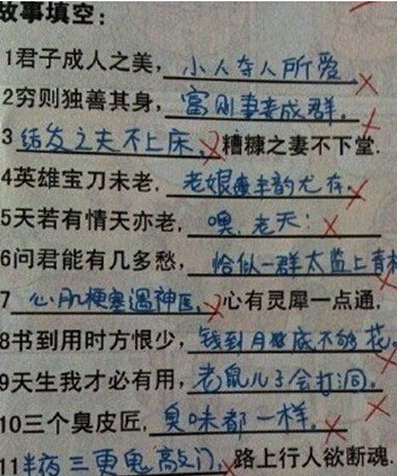 故事填空：
1君子成人之美，小人夺人所爱
2穷则独善其身，富则妻妾成群。
3结发之夫不上床，糟糠之妻不下堂.
4英雄宝刀未老，老娘丰韵尤存。
5天若有情天亦老，噢，老天！
6问君能有几多愁，恰似一群太监上青
7心肌梗塞遇神医，心有灵犀一点通，
8书到用时方恨少，钱到月底不够花。
9天生我才必有用，老鼠儿子会打洞。
10三个臭皮匠，臭味都一样。
11半夜三更鬼敲门，路上行人欲断魂.